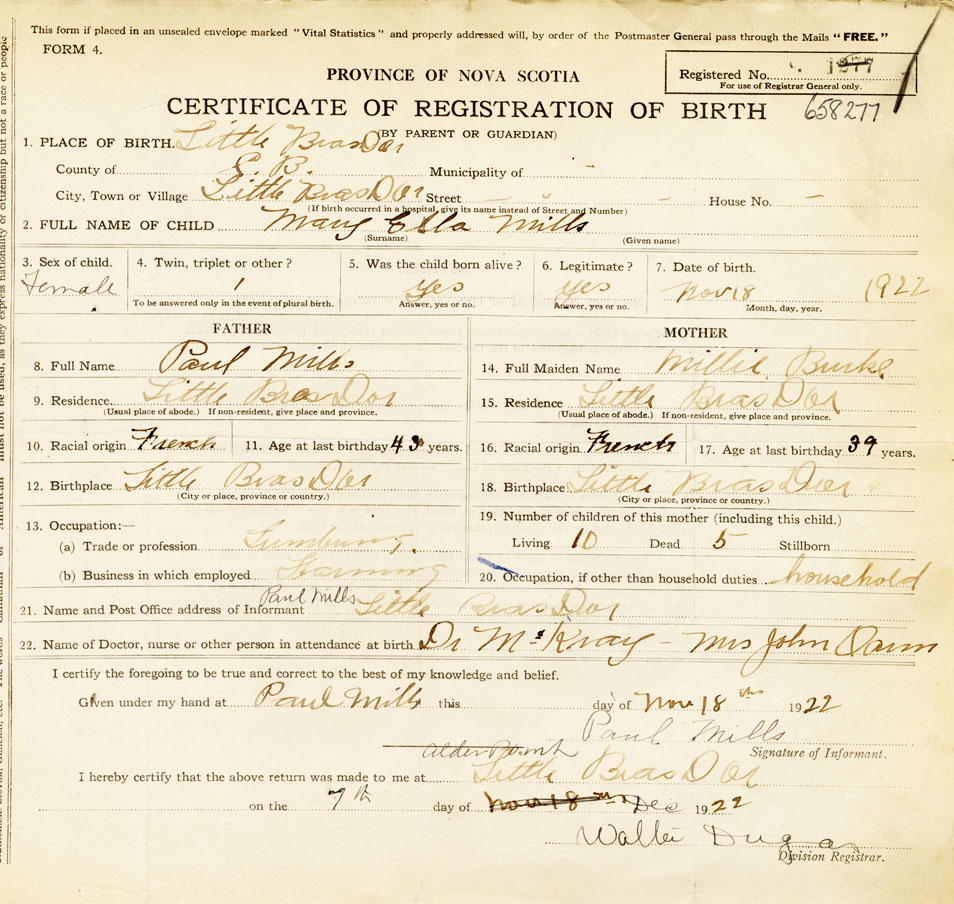 This form if placed in an unsealed envelope marked "Vital Statistics" and properly addressed will, by order of the Postmaster General pass through the Mails "FREE."
FORM 4.
PROVINCE OF NOVA SCOTIA
Registered No. 1277
For use of Registrar General only.
CERTIFICATE OF REGISTRATION OF BIRTH 658277
(BY PARENT OR GUARDIAN)
1. PLACE OF BIRTH. Little Bras Dor
County of C. B. Municipality of –
City, Town or Village Little Bras Dor Street – – House No. –
(If birth occurred in a hospital, give its name instead of Street and Number)
2. FULL NAME OF CHILD Mary Ella Mills
(Surname) (Given name)
3. Sex of child. 4. Twin, triplet or other? 5. Was the child born alive? 6. Legitimate? 7. Date of birth.
Female 1 yes yes Nov 18 1922
To be answered only in the event of plural birth. Answer, yes or no. Answer, yes or no. Month, day, year.
FATHER
8. Full Name Paul Mills
9. Residence. Little Bras Dor
(Usual place of abode.) If non-resident, give place and province.
10. Racial origin French 11. Age at last birthday 43 years.
12. Birthplace Little Bras Dor
(City or place, province or country.)
13. Occupation:—
(a) Trade or profession
(b) Business in which employed Farming
MOTHER
14. Full Maiden Name Millie Burke
15. Residence Little Bras Dor
(Usual place of abode.) If non-resident, give place and province.
16. Racial origin French 17. Age at last birthday 39 years.
18. Birthplace Little Bras Dor
(City or place, province or country.)
19. Number of children of this mother (including this child.)
Living 10 Dead 5 Stillborn
20. Occupation, if other than household duties household
21. Name and Post Office address of Informant Paul Mills Little Bras Dor
22. Name of Doctor, nurse or other person in attendance at birth. Dr McKray – Mrs John
I certify the foregoing to be true and correct to the best of my knowledge and belief.
Given under my hand at Paul Mills this day of Nov 18 ths 1922
Paul Mills
Signature of Informant.
I hereby certify that the above return was made to me at Little Bras Dor
on the 7th day of Nov 18 Dec 1922
Division Registrar.